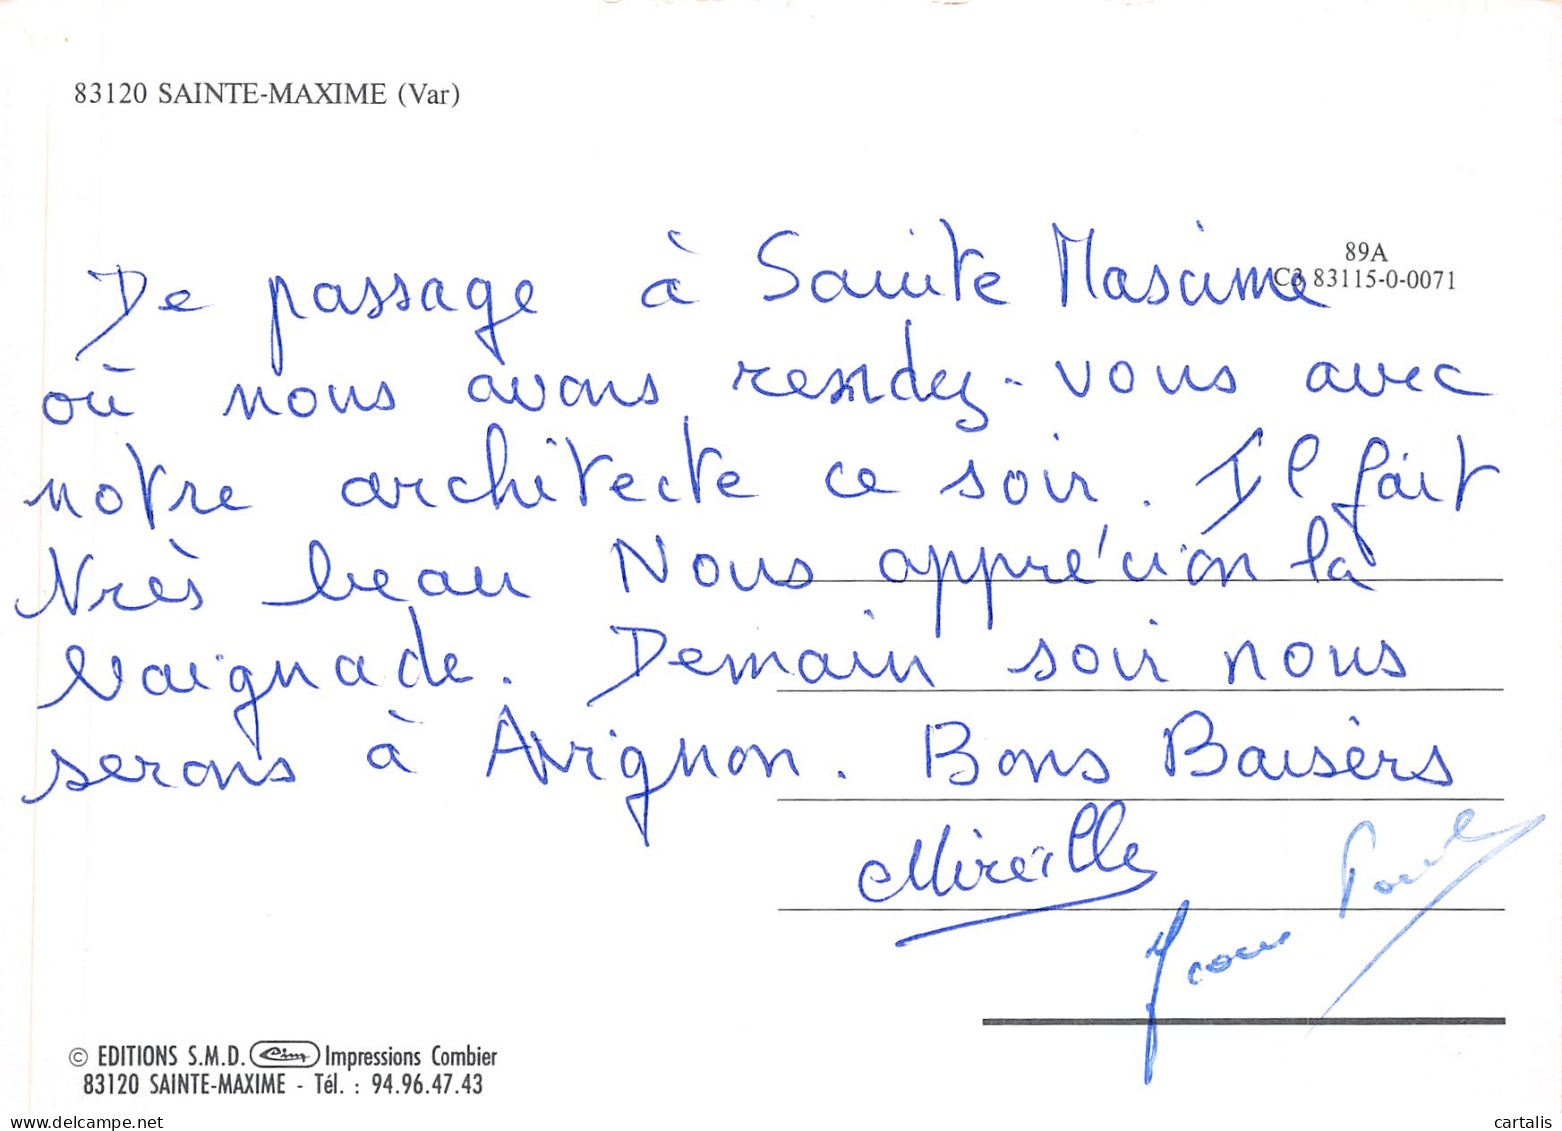 83120 SAINTE-MAXIME (Var)
89A
C3 83115-0-0071
De passage à Sainte Maxime
où nous avons rendez-vous avec
notre architecte ce soir. Il fait
très beau Nous apprécion la
baignade. Demain soir nous
serons à Avignon. Bons Baisèrs
Mireille
Jean Paul
© EDITIONS S.M.D. Cim Impressions Combier
83120 SAINTE-MAXIME - Tél. : 94.96.47.43
delcampe.net
cartalis